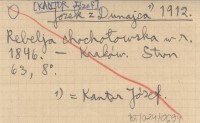 [KANTOR Józef]
Józek z Dunajca 1) 1912.
Rebelja chochołowska w r.
1846. — Kraków. Stron
63, 8°.
1) = Kantor Józef.